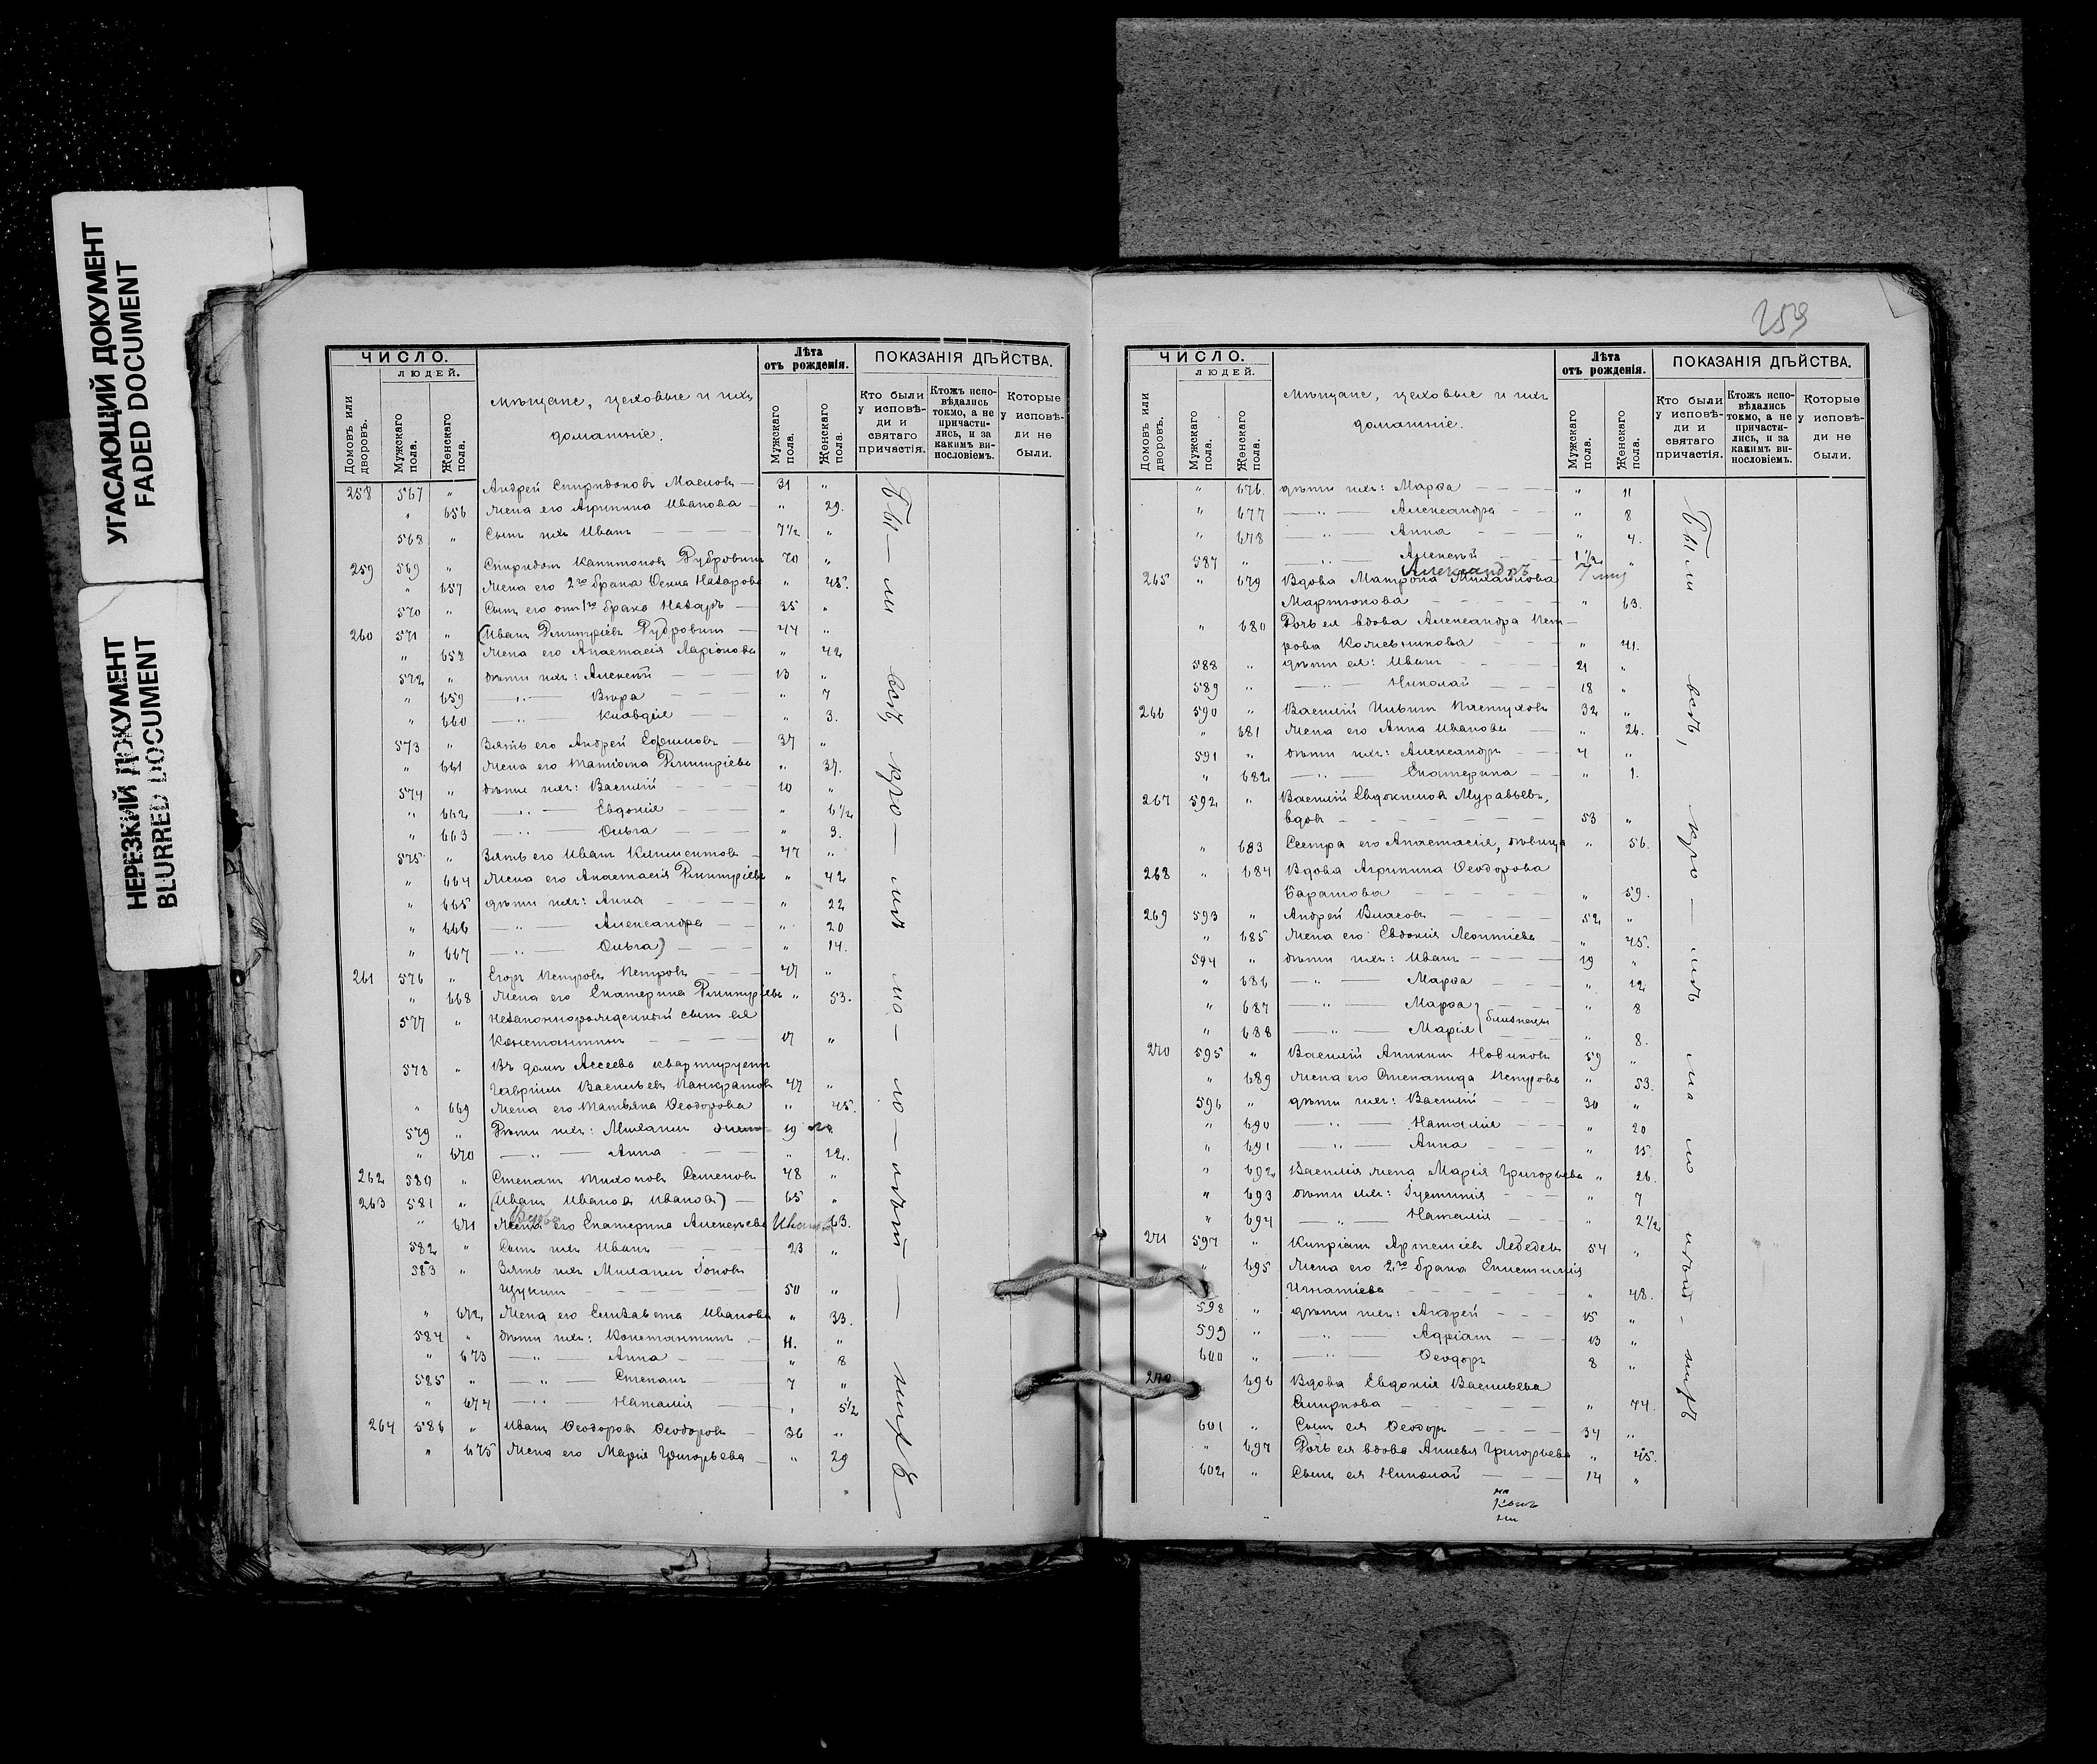 УГАСАЮЩИЙ ДОКУМЕНТ
FADED DOCUMENT
НЕРЕЗКИЙ ДОКУМЕНТ
BLURRED DOCUMENT
ЧИСЛО.
ЛЮДЕЙ.
Домовъ или дворовъ.
Мужскаго пола.
Женскаго пола.
Мѣщане, цеховые и ихъ
домашніе.
Лѣта
отъ рожденія.
Мужскаго пола.
Женскаго пола.
ПОКАЗАНІЯ ДѢЙСТВА.
Кто были у исповѣди и святаго причастія.
Ктожъ исповѣдались токмо, а не причастились, и за какимъ винословіемъ.
Которые у исповѣди не были.
258 567 " Андрей Спиридоновъ Масловъ — 31 "
" 656 Жена его Агрипина Иванова — " 29.
568 " Сынъ ихъ Иванъ — 7½ "
259 569 " Спиридонъ Капитоновъ 70 "
" 657 Жена его 2го брака Ѳекла Назарова " 45.
570 " Сынъ его отъ 1го брака Назаръ — 35 "
260 571 " (Иванъ Димитріевъ — 44 "
" 658 Жена его Анастасія Ларіонова " 42
572 " дѣти ихъ: Алексѣй — 13 "
" 659 — " — Вѣра — " 7
" 660 — " — Клавдія — " 3.
573 " Зять его Андрей Ефимовъ — 37 "
" 661 Жена его Татіана Димитріева " 37.
574 " дѣти ихъ: Василій — 10 "
" 662 — " — Евдокія " 6½
" 663 — " — Ольга — " 3.
575 " Зять его Иванъ Климентовъ — 47 "
" 664 Жена его Анастасія Димитріева " 42
" 665 дѣти ихъ: Анна — " 22
" 666 — " — Александра — " 20
" 667 — " — Ольга) — " 14.
261 576 " Егоръ Петровъ Петровъ — 47 "
" 668 Жена его Екатерина Димитріева " 53.
577 " Незаконнорожденный сынъ ея
Константинъ — 17 "
578 " Въ домѣ Асеева квартируетъ
Гавріилъ Васильевъ Панкратовъ 47 "
" 669 Жена его Татьяна Ѳеодорова " 45.
579 " Дѣти ихъ: Михаилъ 19
" 670 — " — Анна — " 12.
262 580 " Степанъ Тихоновъ Семеновъ 48 "
263 581 " (Иванъ Ивановъ Ивановъ) — 65 "
" 671 Жена его Екатерина Алексѣева 63.
Вдова
582 " Сынъ ихъ Иванъ — 23 "
583 " Зять ихъ Михаилъ
Щукинъ — 50 "
" 672 Жена его Елизавета Иванова " 33.
584 " дѣти ихъ: Константинъ — 11. "
" 673 — " — Анна — " 8
585 " — " — Степанъ — 7 "
" 674 — " — Наталія — " 5½
264 586 " Иванъ Ѳеодоровъ Ѳеодоровъ — 36 "
" 675 Жена его Марія Григорьева — " 29
Бы — ли всѣ, кро — мѣ ма — ло — лѣт — нихъ
259
ЧИСЛО.
ЛЮДЕЙ.
Домовъ или дворовъ.
Мужскаго пола.
Женскаго пола.
Мѣщане, цеховые и ихъ
домашніе.
Лѣта
отъ рожденія.
Мужскаго пола.
Женскаго пола.
ПОКАЗАНІЯ ДѢЙСТВА.
Кто были у исповѣди и святаго причастія.
Ктожъ исповѣдались токмо, а не причастились, и за какимъ винословіемъ.
Которые у исповѣди не были.
" 676. дѣти ихъ: Марѳа — " 11
" 677 — " — Александра — " 8
" 678 — " — Анна — " 4.
587 " — " — Алексѣй — 1½ "
Александръ
265 " 679 Вдова Матрона Михайлова
Мартюкова — " 63.
" 680 Дочь ея вдова Александра Пет-
рова Колесникова — " 41.
588 " дѣти ея: Иванъ — 21 "
589 " — " — Николай — 18 "
266 590 " Василій Ильинъ Пастуховъ 32 "
" 681 Жена его Анна Иванова — " 26.
591 " дѣти ихъ: Александръ — 4 "
" 682 — " — Екатерина — " 1.
267 592 " Василій Евдокимовъ Муравьевъ,
вдовъ — 53 "
" 683 Сестра его Анастасія, дѣвица " 56.
268 " 684 Вдова Агрипина Ѳеодорова
Барашова — " 59.
269 593 " Андрей Власовъ — 52 "
" 685 Жена его Евдокія Леонтіева — " 45.
594 " дѣти ихъ: Иванъ — 19 "
" 686 — " — Марѳа — " 12
" 687 — " — Марѳа } близнецы " 8
" 688 — " — Марія " 8.
270 595 " Василій Аникинъ Новиковъ 59 "
" 689 Жена его Степанида Петрова " 53.
596 " дѣти ихъ: Василій — 30 "
" 690 — " — Наталія — " 20
" 691 — " — Анна — " 15.
" 692 Василія жена Марія Григорьева " 26.
" 693 дѣти ихъ: Іустинія — " 7
" 694 — " — Наталія — " 2½
271 597 " Кипріанъ Артеміевъ Лебедевъ 54 "
" 695 Жена его 2го брака Епистимія
Игнатіева — " 48.
598 " дѣти ихъ: Андрей — 15 "
599 " — " — Адріанъ — 13 "
600 " — " — Ѳеодоръ 8 "
696 Вдова Евдокія Васильева
Смирнова — " 74.
601 " Сынъ ея Ѳеодоръ — 34 "
" 697 Дочь ея вдова Григорьева " 45.
602 " Сынъ ея Николай — 14 "
Бы ли всѣ, кро — мѣ ма ло лѣт — нихъ